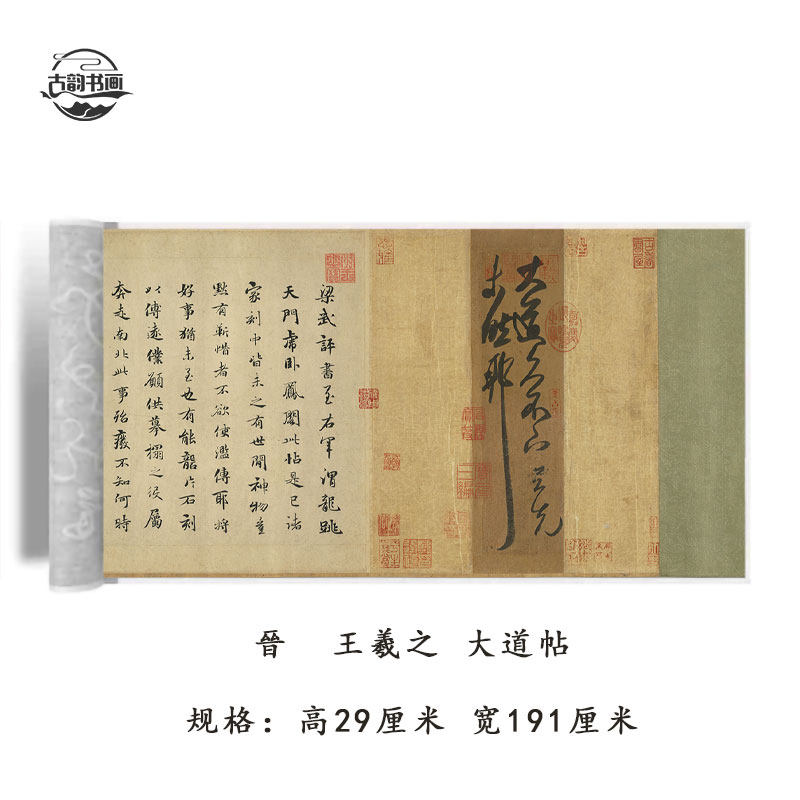 古韵书画
大道久不下與先
未然耶
梁武評書至右軍謂龍跳
天門虎卧鳳閣此帖是已諸
家刻中皆未之有世間神物豈
有靳惜者不欲便濫傳耶將
好事猶未至也有能片石刻
以傳遠僕願供摹搨之役屬
奔走南北此事殆廢不知何時
晉 王羲之 大道帖
规格：高29厘米 宽191厘米